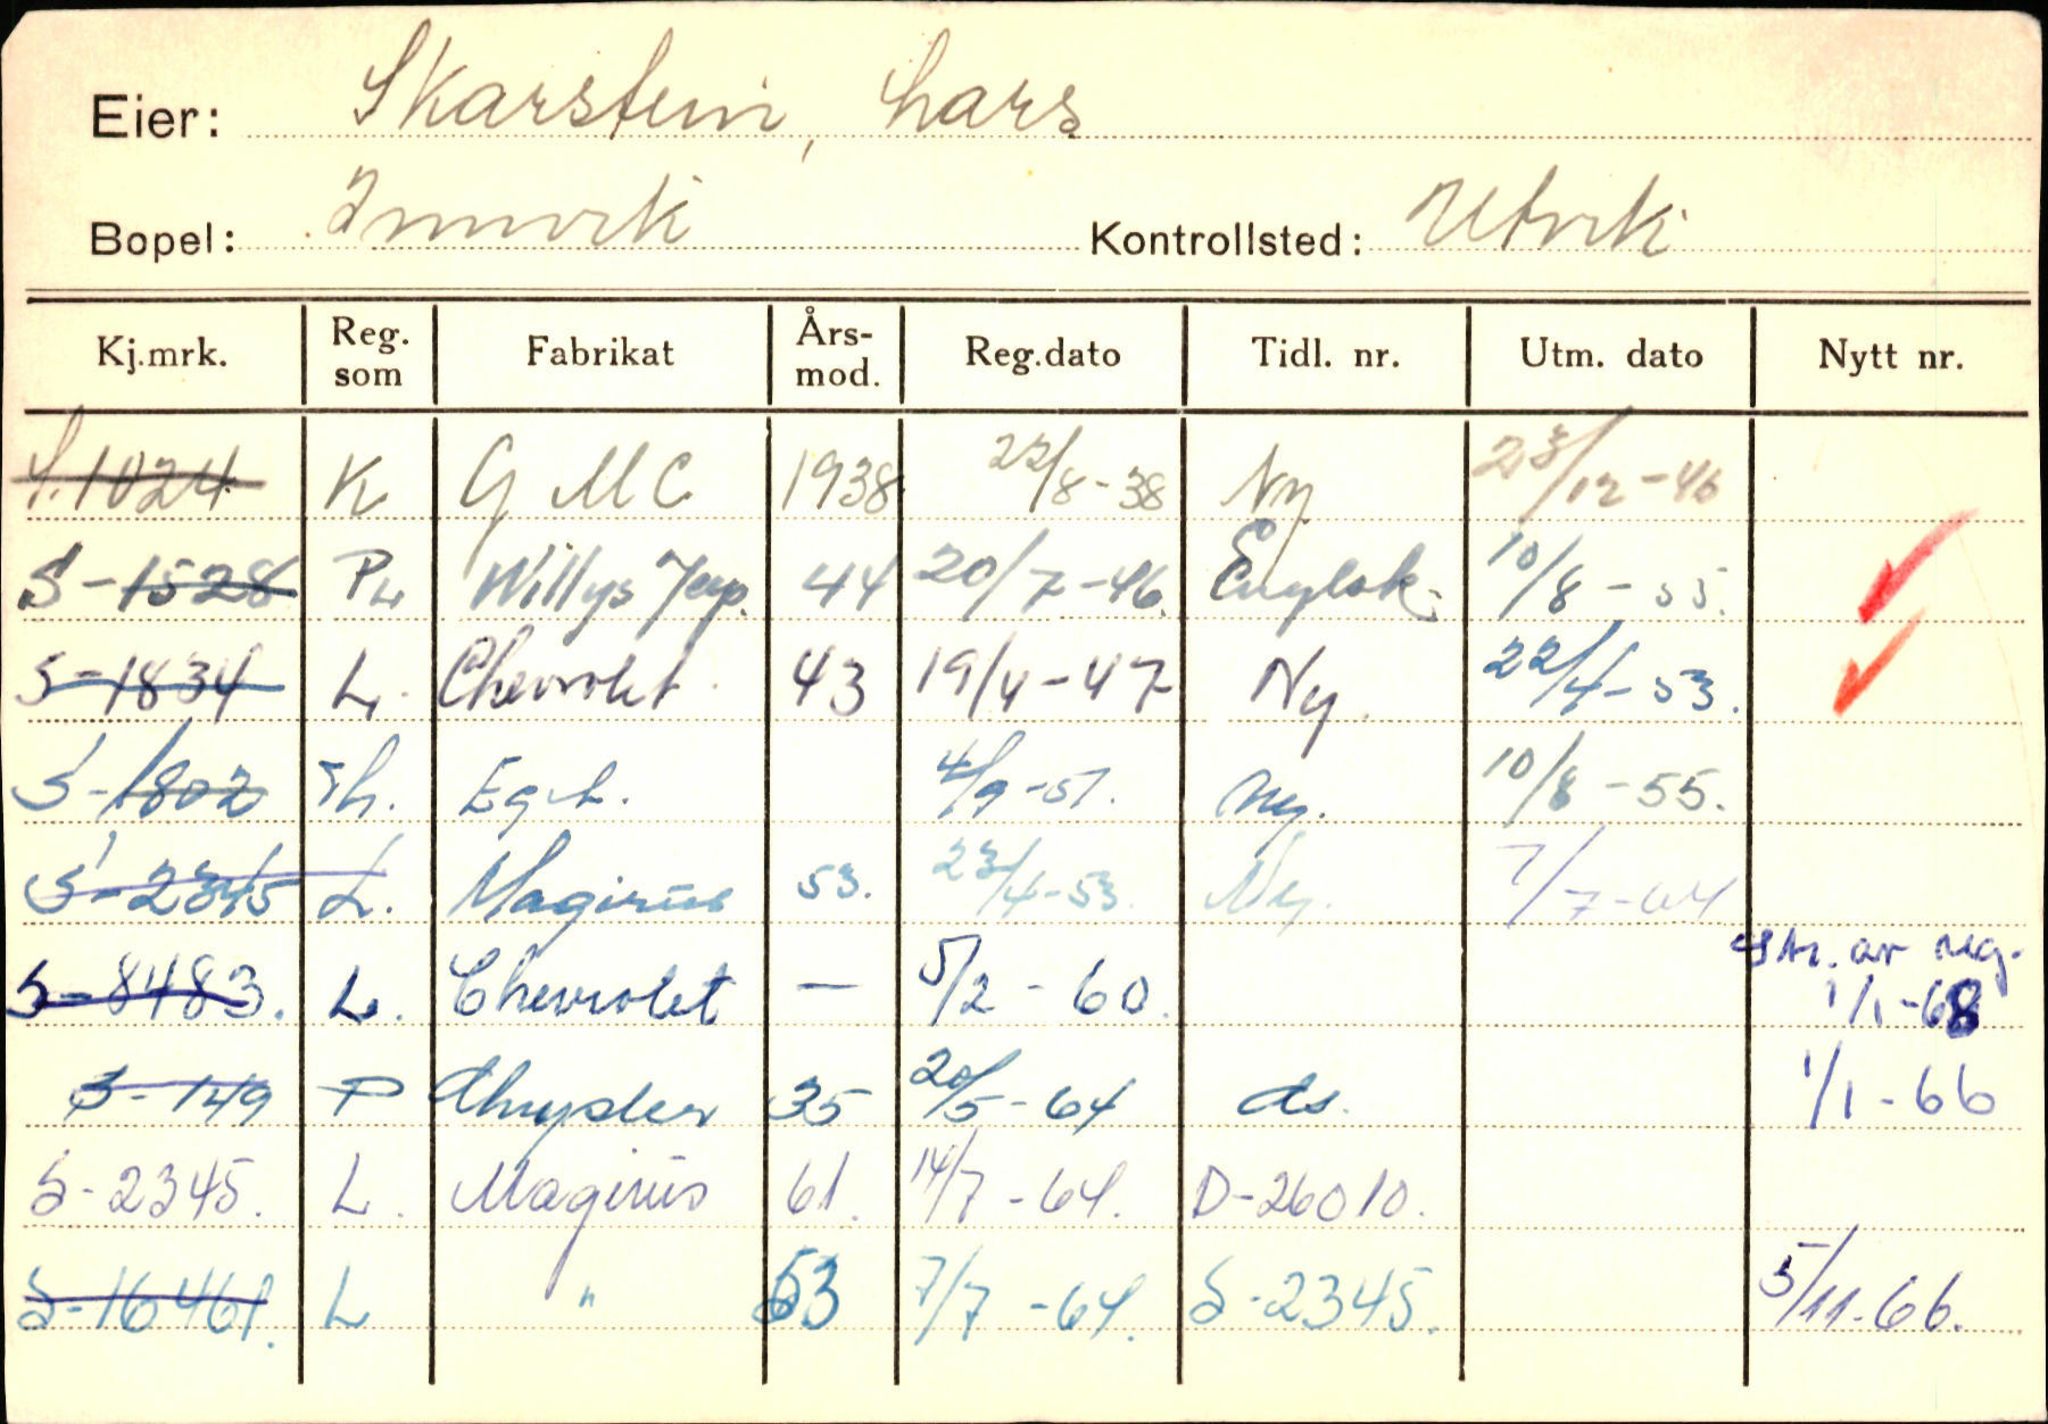 Eier: Skarstein, Lars
Bopel: Innvik Kontrollsted: Utvik
Kj.mrk. Reg. som Fabrikat Års-mod. Reg.dato Tidl. nr. Utm. dato Nytt nr.
S.1024 K GMC 1938 22/8-38 Ny 23/12-46
S-1528 Willys Jeep. 44 20/7-46. Engelsk. 10/8-55.
S-1834 L. Chevrolet. 43 19/4-47 Ny. 22/4-53.
S-1802 4/9-51. Ny. 10/8-55.
S-2345 L. Magirus 53. 23/4-53. Ny. 7/7-64
S-8483. L. Chevrolet — 5/2-60. av reg. 1/1-68
S-149 P Chrysler 35 20/5-64 ds. 1/1-66
S-2345. L. Magirus 61. 14/7-64. D-26010.
S-16461. L " 53 7/7-64. S-2345. 5/11-66.